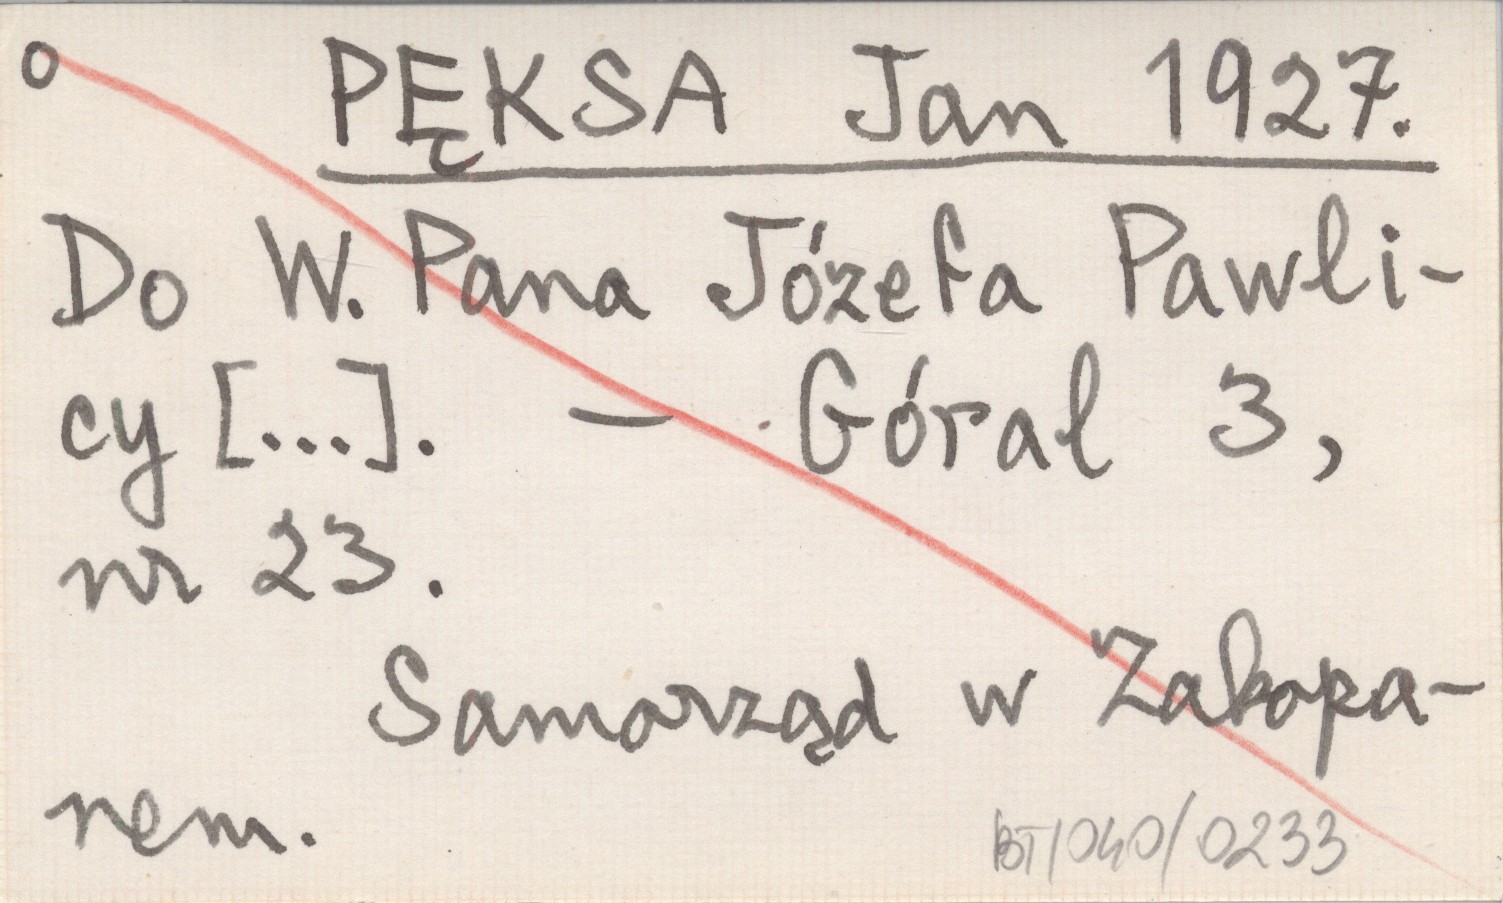 o PĘKSA Jan 1927.
Do W. Pana Józefa Pawli-
cy [...]. — Góral 3,
nr 23.
Samorząd w Zakopa-
nem.
BT/040/0233